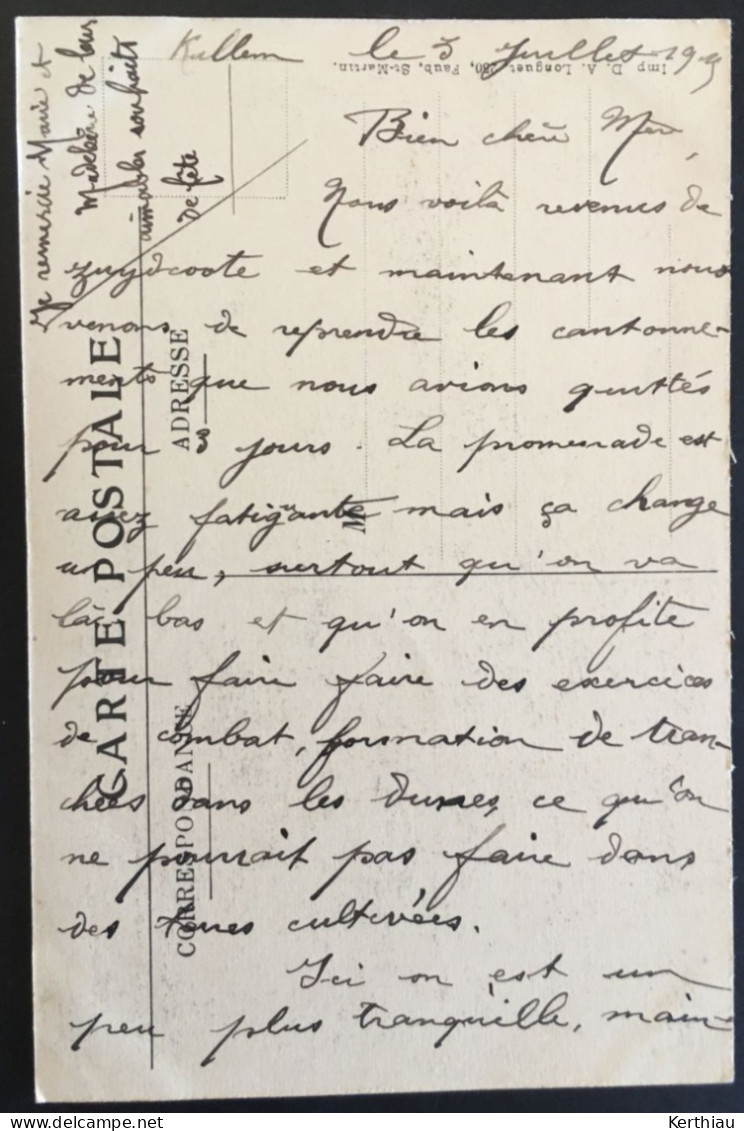 Killem le 3 Juillet 19
Bien chère Mère,
Nous voilà revenus de
Zuydcoote et maintenant nous
venons de reprendre les cantonne-
ments que nous avions quittés
pour 3 jours. La promenade est
assez fatigante mais ça change
un peu, surtout qu'on va
là bas et qu'on en profite
pour faire faire des exercices
de combat, formation de tran-
chées dans les dunes, ce qu'on
ne pourrait pas faire dans
des terres cultivées.
Ici on est un
peu plus tranquille, main-
Je remercie Marie et
Madeleine de leurs
aimables souhaits
de fête
CARTE POSTALE
CORRESPONDANCE
ADRESSE
M
Imp D. A. Longuet 250, Faub. St-Martin.
Kerthiau